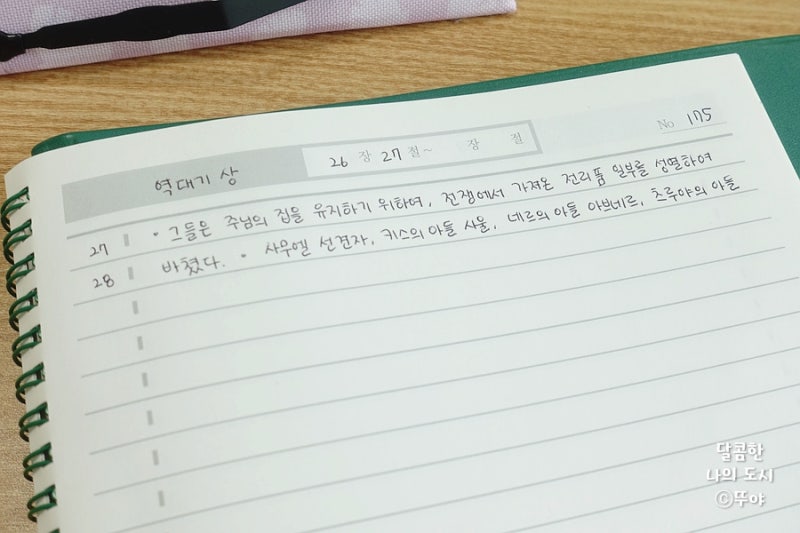 역대기 상 26 장 27 절~ 장 절 No 175
27 • 그들은 주님의 집을 유지하기 위하여, 전쟁에서 가져온 전리품 일부를 성별하여
28 바쳤다. • 사무엘 선견자, 키스의 아들 사울, 네르의 아들 아브네르, 츠루야의 아들
달콤한
나의 도시
©뚜야